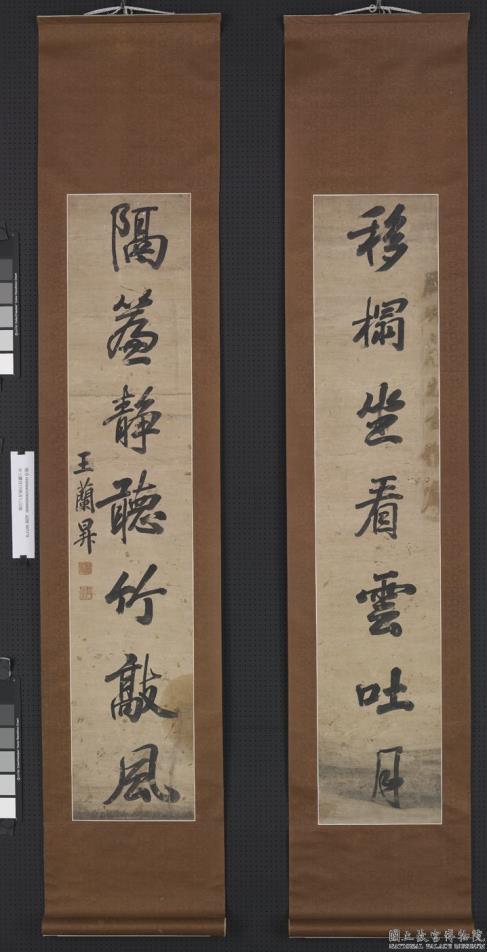 移榻坐看雲吐月
隔簾靜聽竹敲風
王蘭昇
國立故宮博物院
NATIONAL PALACE MUSEUM